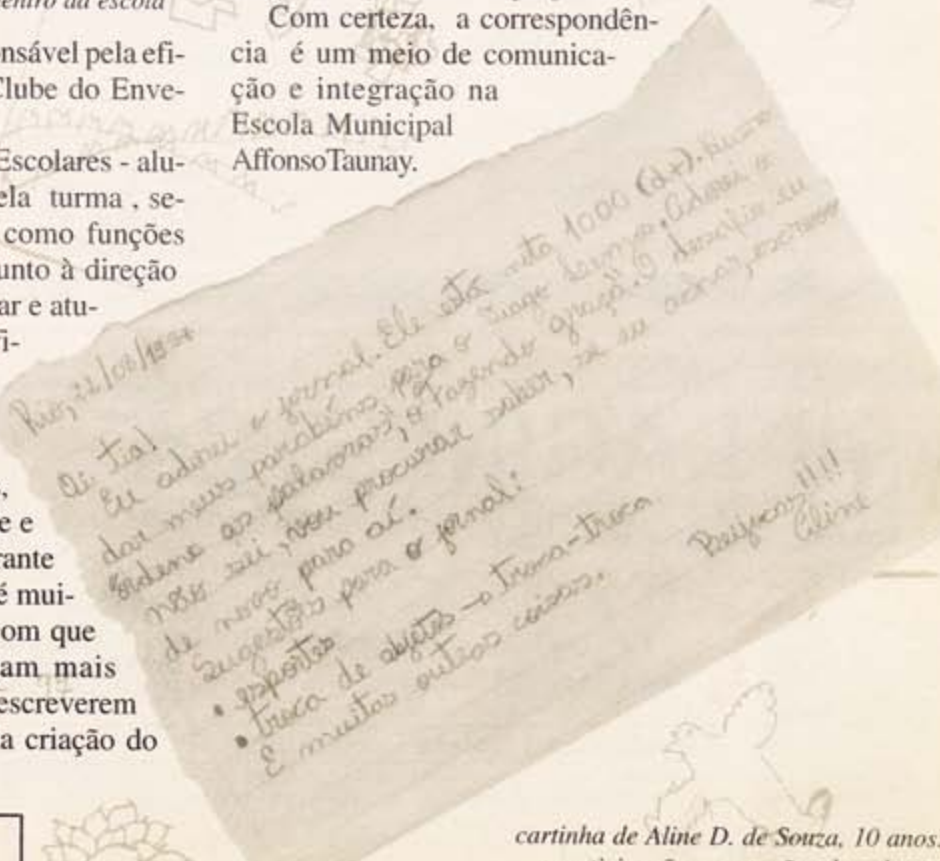 entro da escola
nsável pela efi-
Clube do Enve-
Escolares - alu-
ela turma , se-
como funções
unto à direção
ar e atu-
fi-
e e
rante
é mui-
om que
am mais
escreverem
a criação do
Com certeza, a correspondên-
cia é um meio de comunica-
ção e integração na
Escola Municipal
AffonsoTaunay.
Rio, 22/08/19
Oi tia!
Eu adorei o jornal. Ele está nota 1000 (d+).
dar meus parabéns para o Tiago Adorei o
"Ordene as palavras", o "Fazendo graça". O desafio eu
não sei, vou procurar saber, se eu achar, escrevo
de novo para aí.
Sugestões para o jornal:
• esportes
• troca de objetos → troca-troca
E muitas outras coisas.
Beijocas!!!!
Aline
cartinha de Aline D. de Souza, 10 anos.